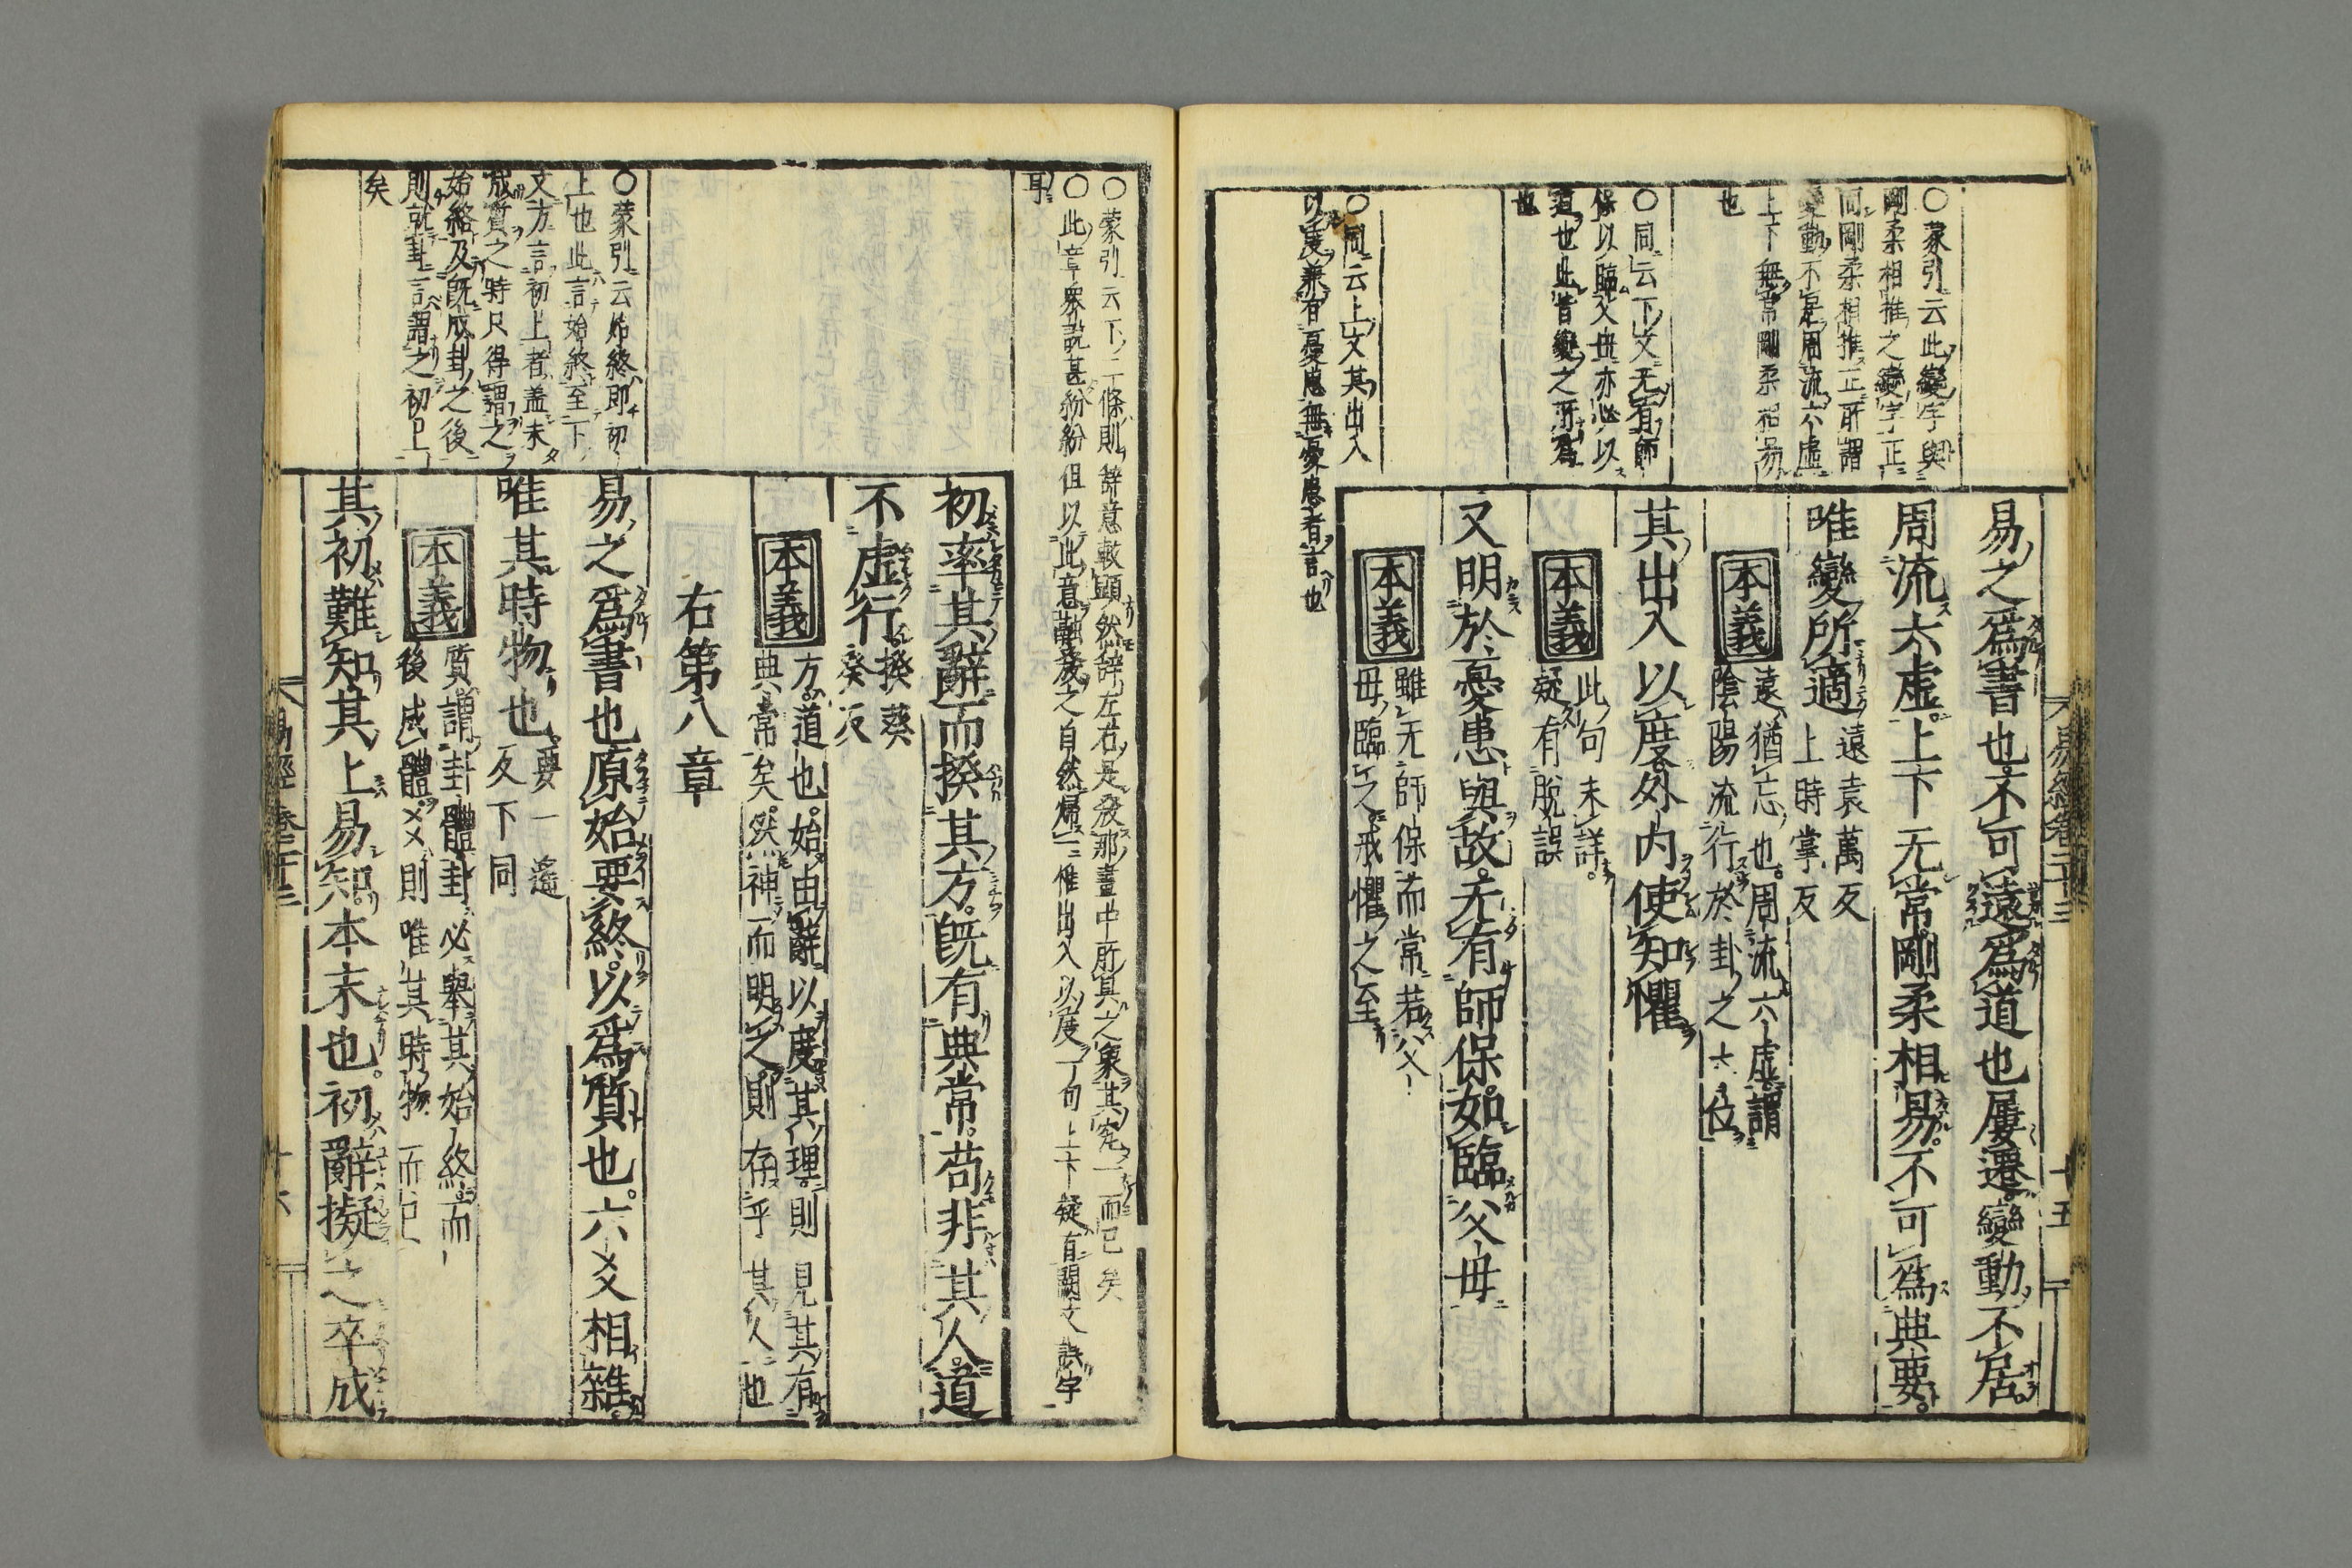 易之爲書也不可遠爲道也屢遷變動不居
周流六虛上下无常剛柔相易不可爲典要
唯變所適
遠袁萬反
上時掌反
本義
遠猶忘也周流六虛謂
陰陽流行於卦之六位
其出入以度外内使知懼
本義
此句未詳
疑有脫誤
又明於憂患與故无有師保如臨父母
本義
雖无師保而常若父
母臨之戒懼之至
○蒙引云此變字與
剛柔相推之變字正
同剛柔相推正所謂
變動不居周流六虛
上下無常剛柔相易
也
○同云下文无有師
保以臨父母亦必以
道也此皆變之所爲
也
○同云上文其出入
以度兼有憂患無憂患者言也
易經卷二十三
十五
○蒙引云下二條則辭意較顯然辭左右是發那畫中所具之象其究一而已矣
○此章衆説甚紛紛但以此意融發之自然歸一惟出入以度一句上下疑有闕文誤字
耳
初率其辭而揆其方既有典常苟非其人道
不虛行
揆葵
癸反
本義
方道也始由辭以度其理則見其有
典常矣然神而明之則存乎其人也
右第八章
易之爲書也原始要終以爲質也六爻相雜
唯其時物也
要一遙
反下同
本義
質謂卦體卦必舉其始終而
後成體爻則唯其時物而已
其初難知其上易知本末也初辭擬之卒成
○蒙引云始終即初
上也此言始終至下
文方言初上者盖未
成質之時只得謂之
始終及既成卦之後
則就卦言謂之初上
矣
易經卷二十三
十六